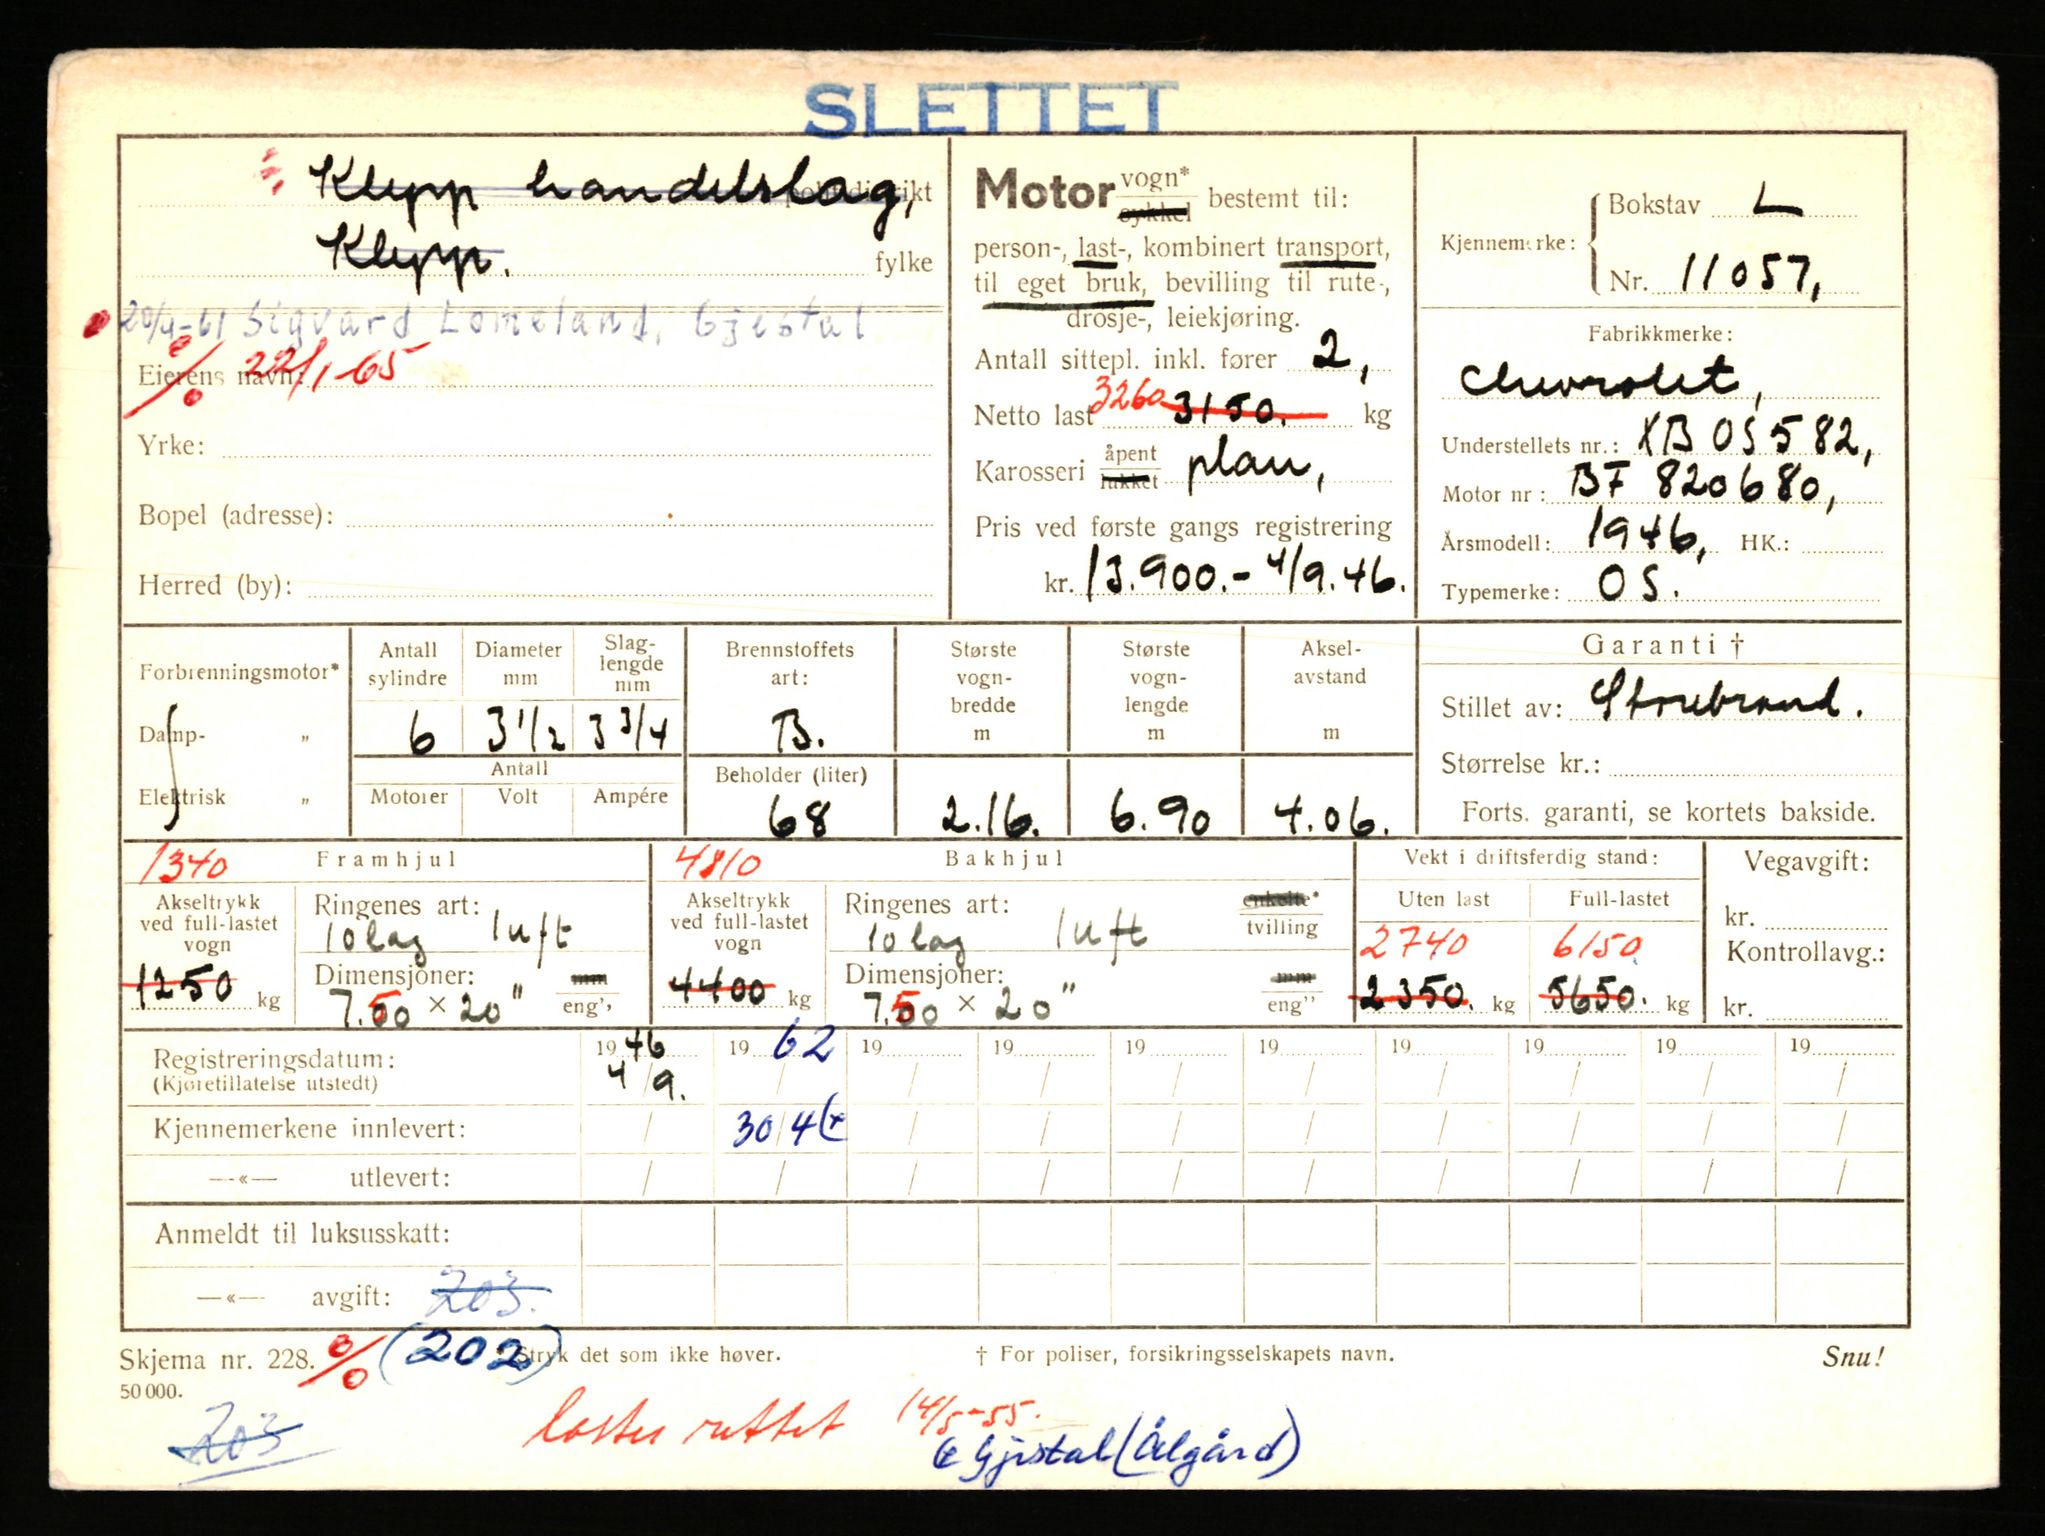 SLETTET
Klepp handelslag, politidistrikt
Klepp. fylke
20/4-61 Sigvard Lomeland, Gjestal
Eierens navn: 22/1-65
Yrke:
Bopel (adresse):
Herred (by):
Motor vogn* sykkel bestemt til:
person-, last-, kombinert transport,
til eget bruk, bevilling til rute-,
drosje-, leiekjøring.
Antall sittepl. inkl. fører 2,
Netto last 3260 3150. kg
Karosseri åpent lukket plan,
Pris ved første gangs registrering
kr. 13.900.- 4/9.46.
Kjennemerke: Bokstav L
Nr. 11057,
Fabrikkmerke:
Chevrolet,
Understellets nr.: XB OS 582,
Motor nr: BF 820680,
Årsmodell: 1946, HK.:
Typemerke: OS.
Forbrenningsmotor*
Damp- „
Elektrisk „
Antall sylindre 6
Diameter mm 3 1/2
Slag-lengde mm 3 3/4
Antall
Motorer Volt Ampére
Brennstoffets art: B.
Beholder (liter) 68
Største vogn-bredde m 2.16.
Største vogn-lengde m 6.90
Aksel-avstand m 4.06.
Garanti †
Stillet av: Storebrand.
Størrelse kr.:
Forts. garanti, se kortets bakside.
1340 Framhjul
Akseltrykk ved full-lastet vogn 1250 kg
Ringenes art: 10 lag luft
Dimensjoner: 7.50 × 20" mm eng",
4810 Bakhjul
Akseltrykk ved full-lastet vogn 4400 kg
Ringenes art: 10 lag luft enkelte* tvilling
Dimensjoner: 7.50 × 20" mm eng"
Vekt i driftsferdig stand:
Uten last Full-lastet
2740 6150
2350. kg 5650. kg
Vegavgift:
kr.
Kontrollavg.:
kr.
Registreringsdatum: 1946 1962 19 19 19 19 19 19 19 19
(Kjøretillatelse utstedt) 4/9.
Kjennemerkene innlevert: 30/4
—«— utlevert:
Anmeldt til luksusskatt:
—«— avgift: 203.
Skjema nr. 228. % (202) Stryk det som ikke høver. † For poliser, forsikringsselskapets navn. Snu!
50 000.
203
lasten rettet 14/5-55.
Gjestal (Ålgård)